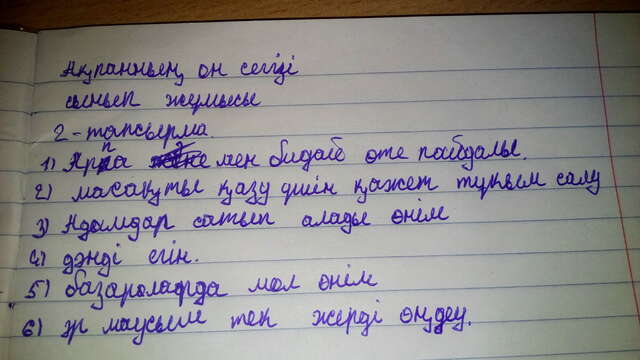 Ақпанның он сегізі
сынып жұмысы
2-тапсырма.
1) Арпа мен бидай өте пайдалы.
2) масақты қазу үшін қажет тұқым салу
3) Адамдар сатып алады өнім
4) дәнді егін.
5) базарларда мол өнім
6) әр маусым тек жерді өңдеу.